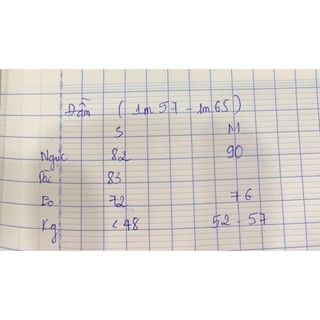 Đầm ( 1m57 - 1m65 )
S M
Ngực 82 90
Dài 83
Eo 72 76
Kg < 48 52 - 57